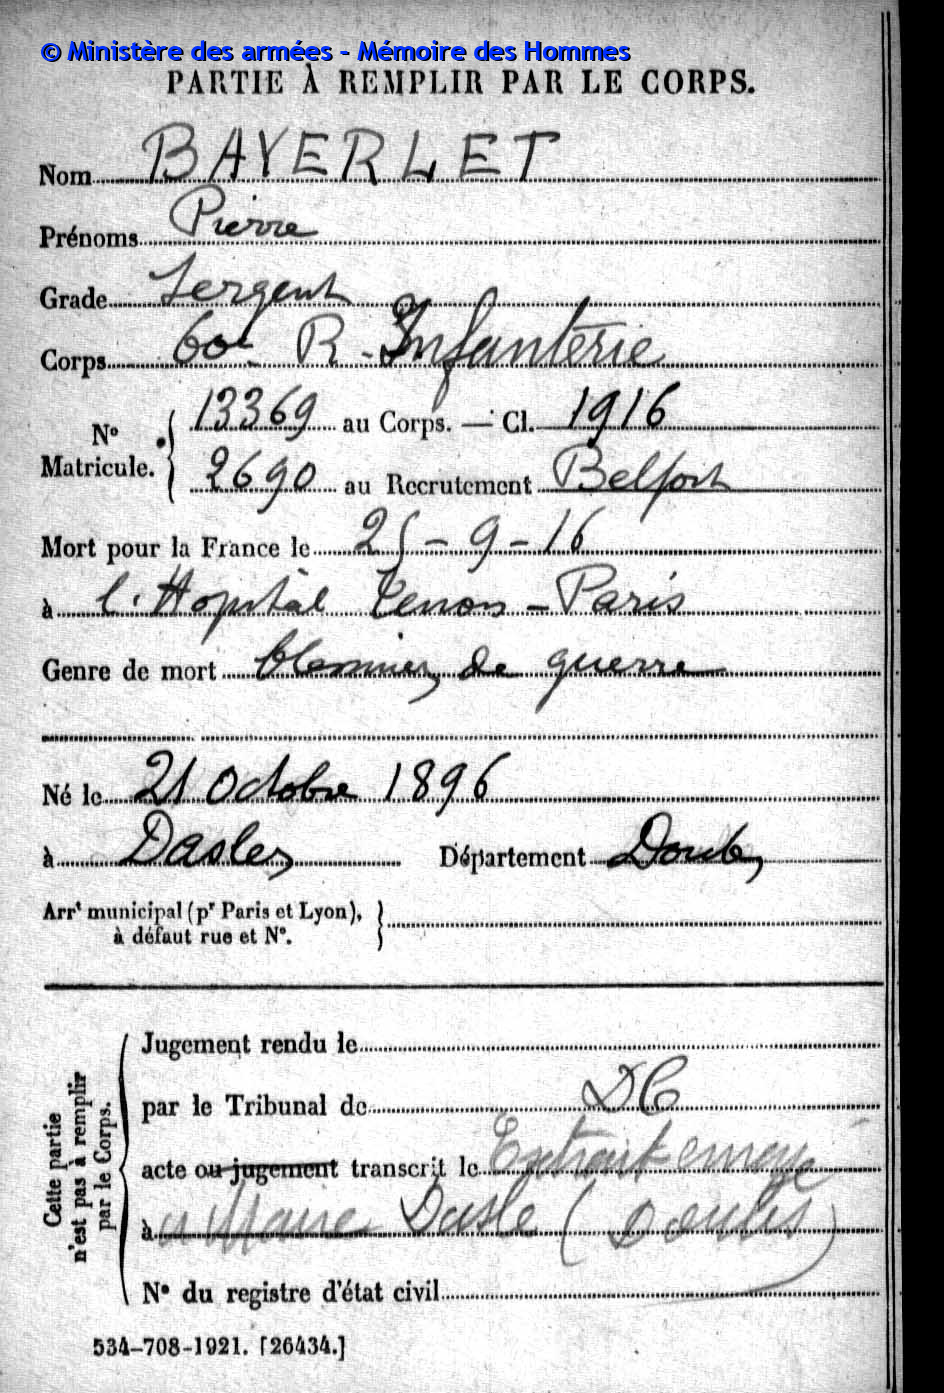 © Ministère des armées - Mémoire des Hommes
PARTIE À REMPLIR PAR LE CORPS.
Nom BAYERLET
Prénoms Pierre
Grade Sergent
Corps 60e R. Infanterie
N° Matricule. { 13369 au Corps. — Cl. 1916
2690 au Recrutement Belfort
Mort pour la France le 25-9-16
à l'Hopital Tenon - Paris
Genre de mort blessures de guerre
Né le 21 Octobre 1896
à Dasles Département Doubs
Arrt municipal (pr Paris et Lyon),
à défaut rue et N°.
Cette partie
n'est pas à remplir
par le Corps.
Jugement rendu le
par le Tribunal de DC
acte ou jugement transcrit le Extrait envoyé
à Maire Dasle (Doubs)
N° du registre d'état civil
534-708-1921. [26434.]